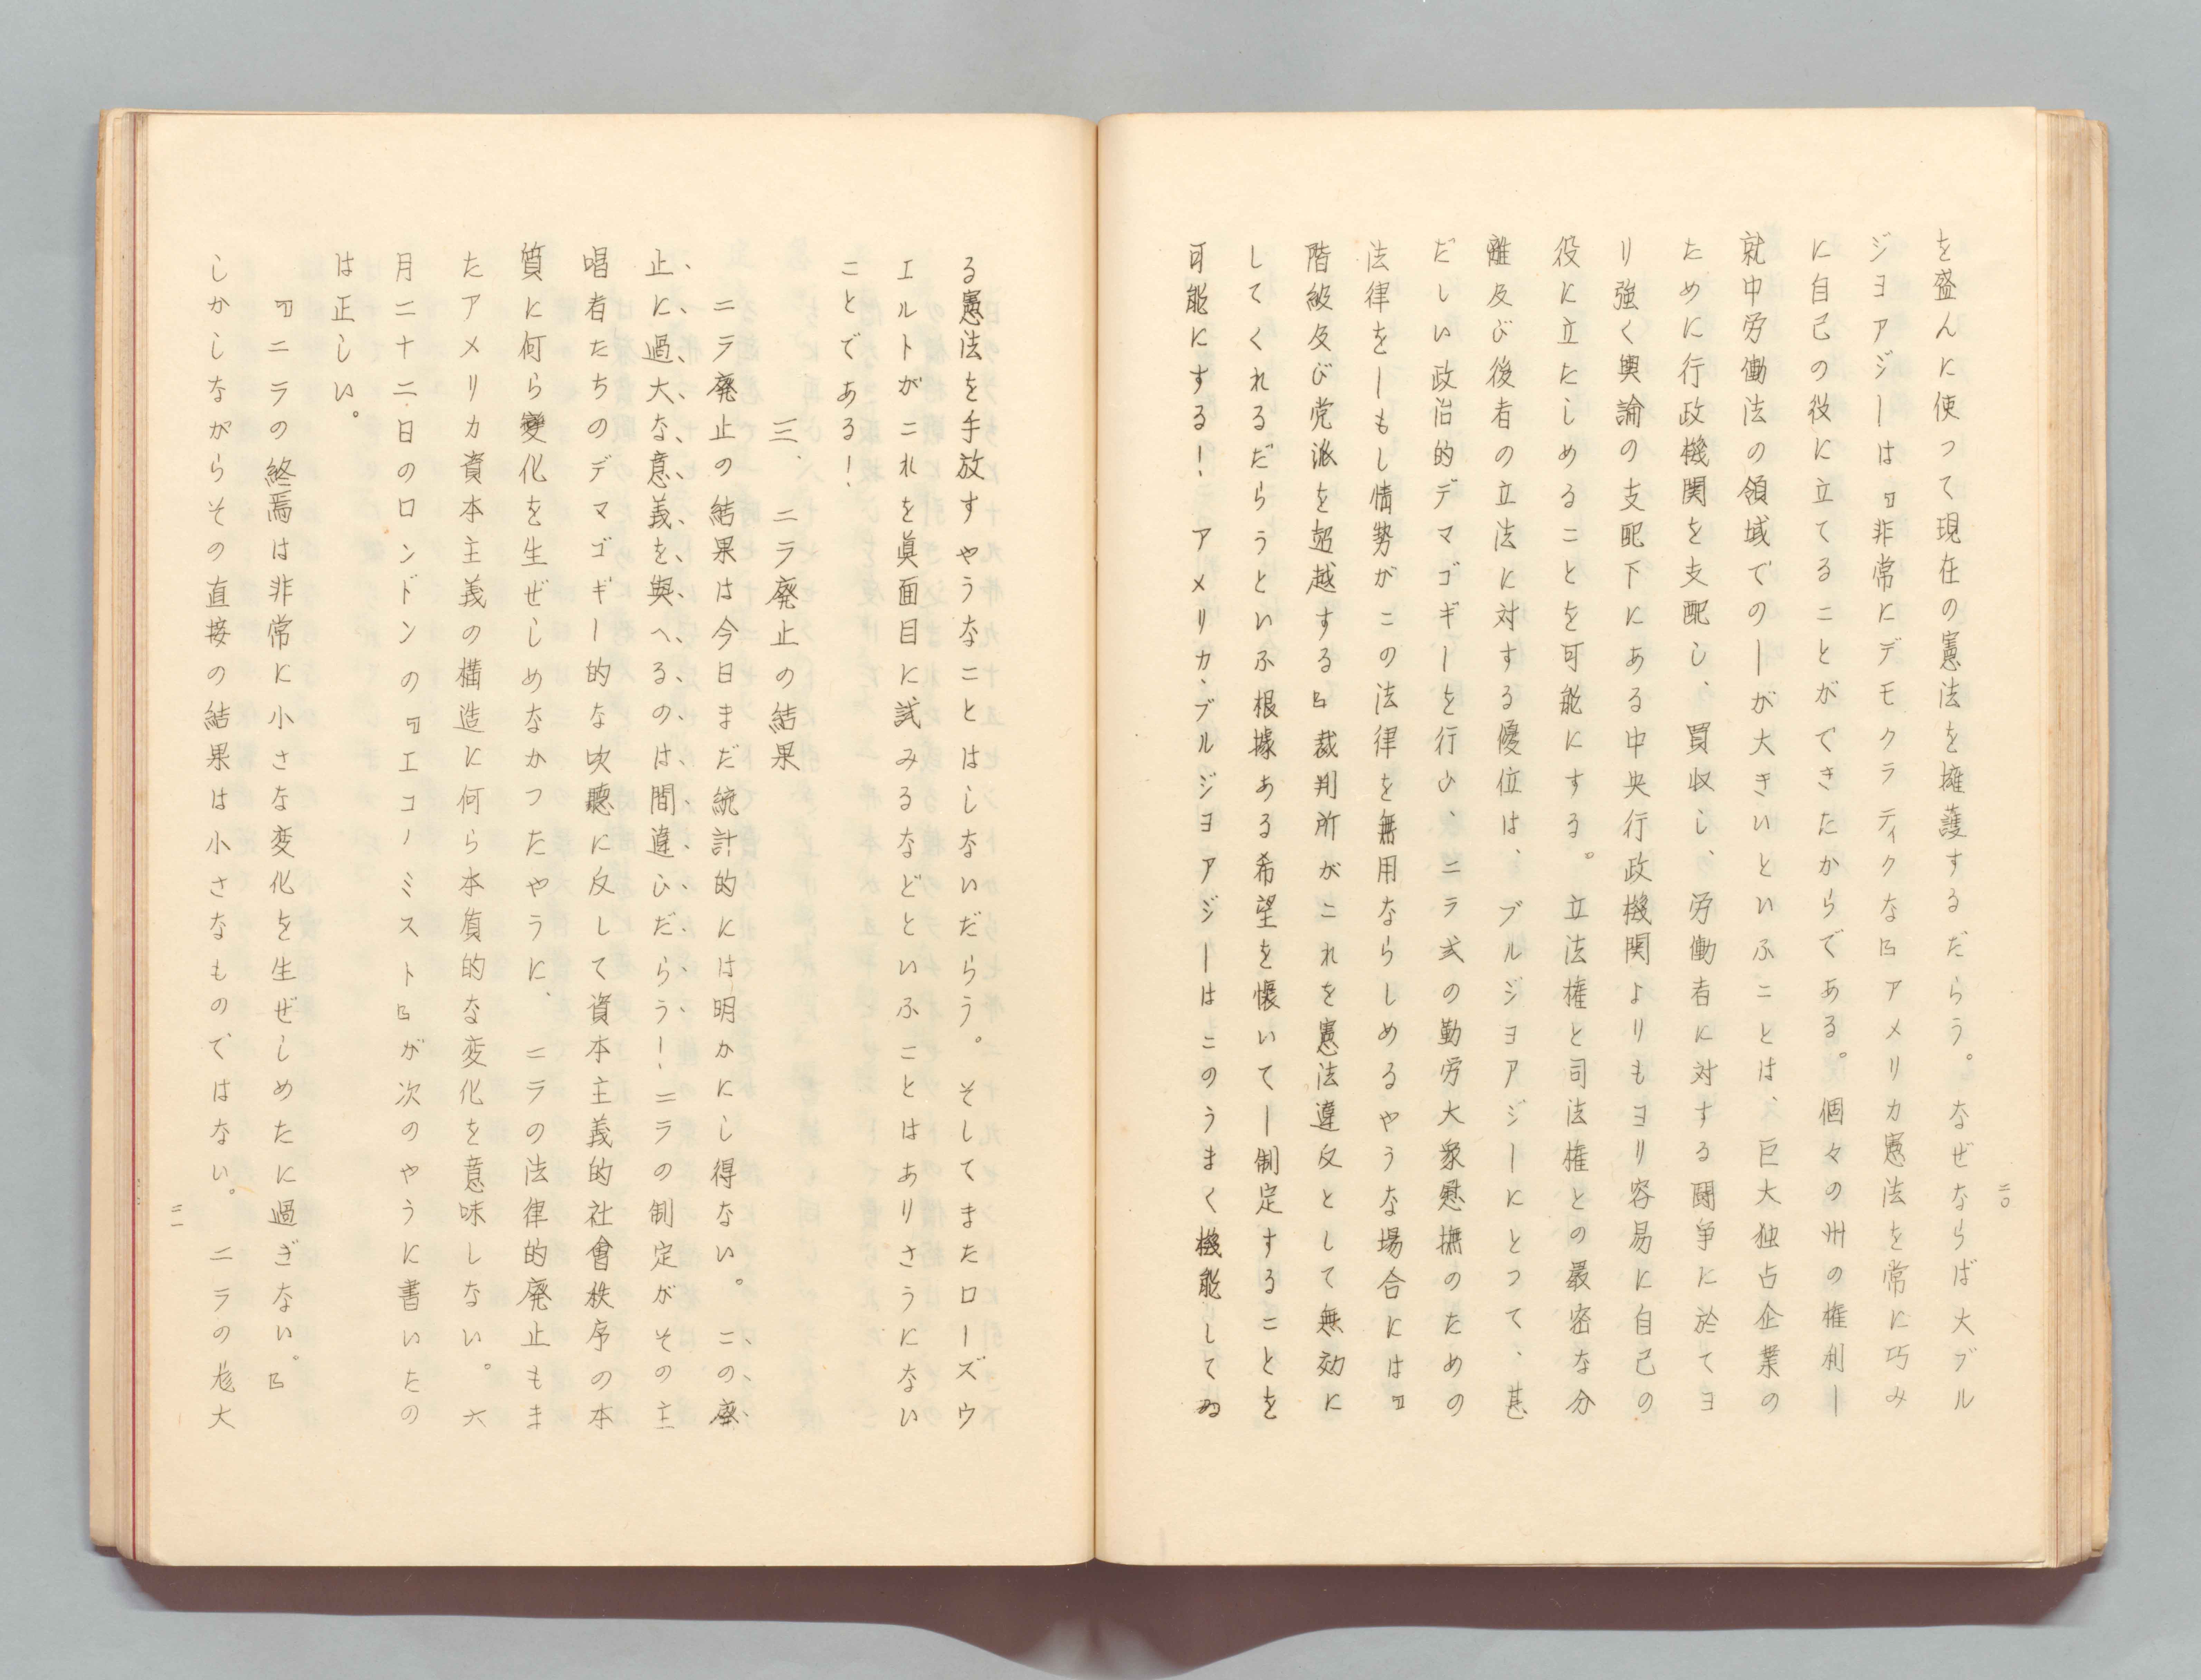 二〇
を盛んに使つて現在の憲法を擁護するだらう。なぜならば大ブル
ジヨアジーは『非常にデモクラティクな』アメリカ憲法を常に巧み
に自己の役に立てることができたからである。個々の州の権利ー
就中労働法の領域でのーが大きいといふことは、巨大独占企業の
ために行政機関を支配し、買収し、労働者に対する闘争に於てヨ
リ強く輿論の支配下にある中央行政機関よりもヨリ容易に自己の
役に立たしめることを可能にする。立法権と司法権との厳密な分
離及び後者の立法に対する優位は、ブルジヨアジーにとつて、甚
だしい政治的デマゴギーを行ひ、ニラ式の勤労大衆慰撫のための
法律をーもし情勢がこの法律を無用ならしめるやうな場合には『
階級及び党派を超越する』裁判所がこれを憲法違反として無効に
してくれるだらうといふ根據ある希望を懐いてー制定することを
可能にする！アメリカ、ブルジヨアジーはこのうまく機能してゐ
る憲法を手放すやうなことはしないだらう。そしてまたローズウ
エルトがこれを眞面目に試みるなどといふことはありさうにない
ことである！
三、ニラ廃止の結果
ニラ廃止の結果は今日まだ統計的には明かにし得ない。この廃
止に過大な意義を與へるのは間違ひだらう！ニラの制定がその主
唱者たちのデマゴギー的な吹聴に反して資本主義的社會秩序の本
質に何ら變化を生ぜしめなかつたやうに、ニラの法律的廃止もま
たアメリカ資本主義の構造に何ら本質的な変化を意味しない。六
月二十二日のロンドンの『エコノミスト』が次のやうに書いたの
は正しい。
『ニラの終焉は非常に小さな変化を生ぜしめたに過ぎない。』
しかしながらその直接の結果は小さなものではない。ニラの尨大
二一